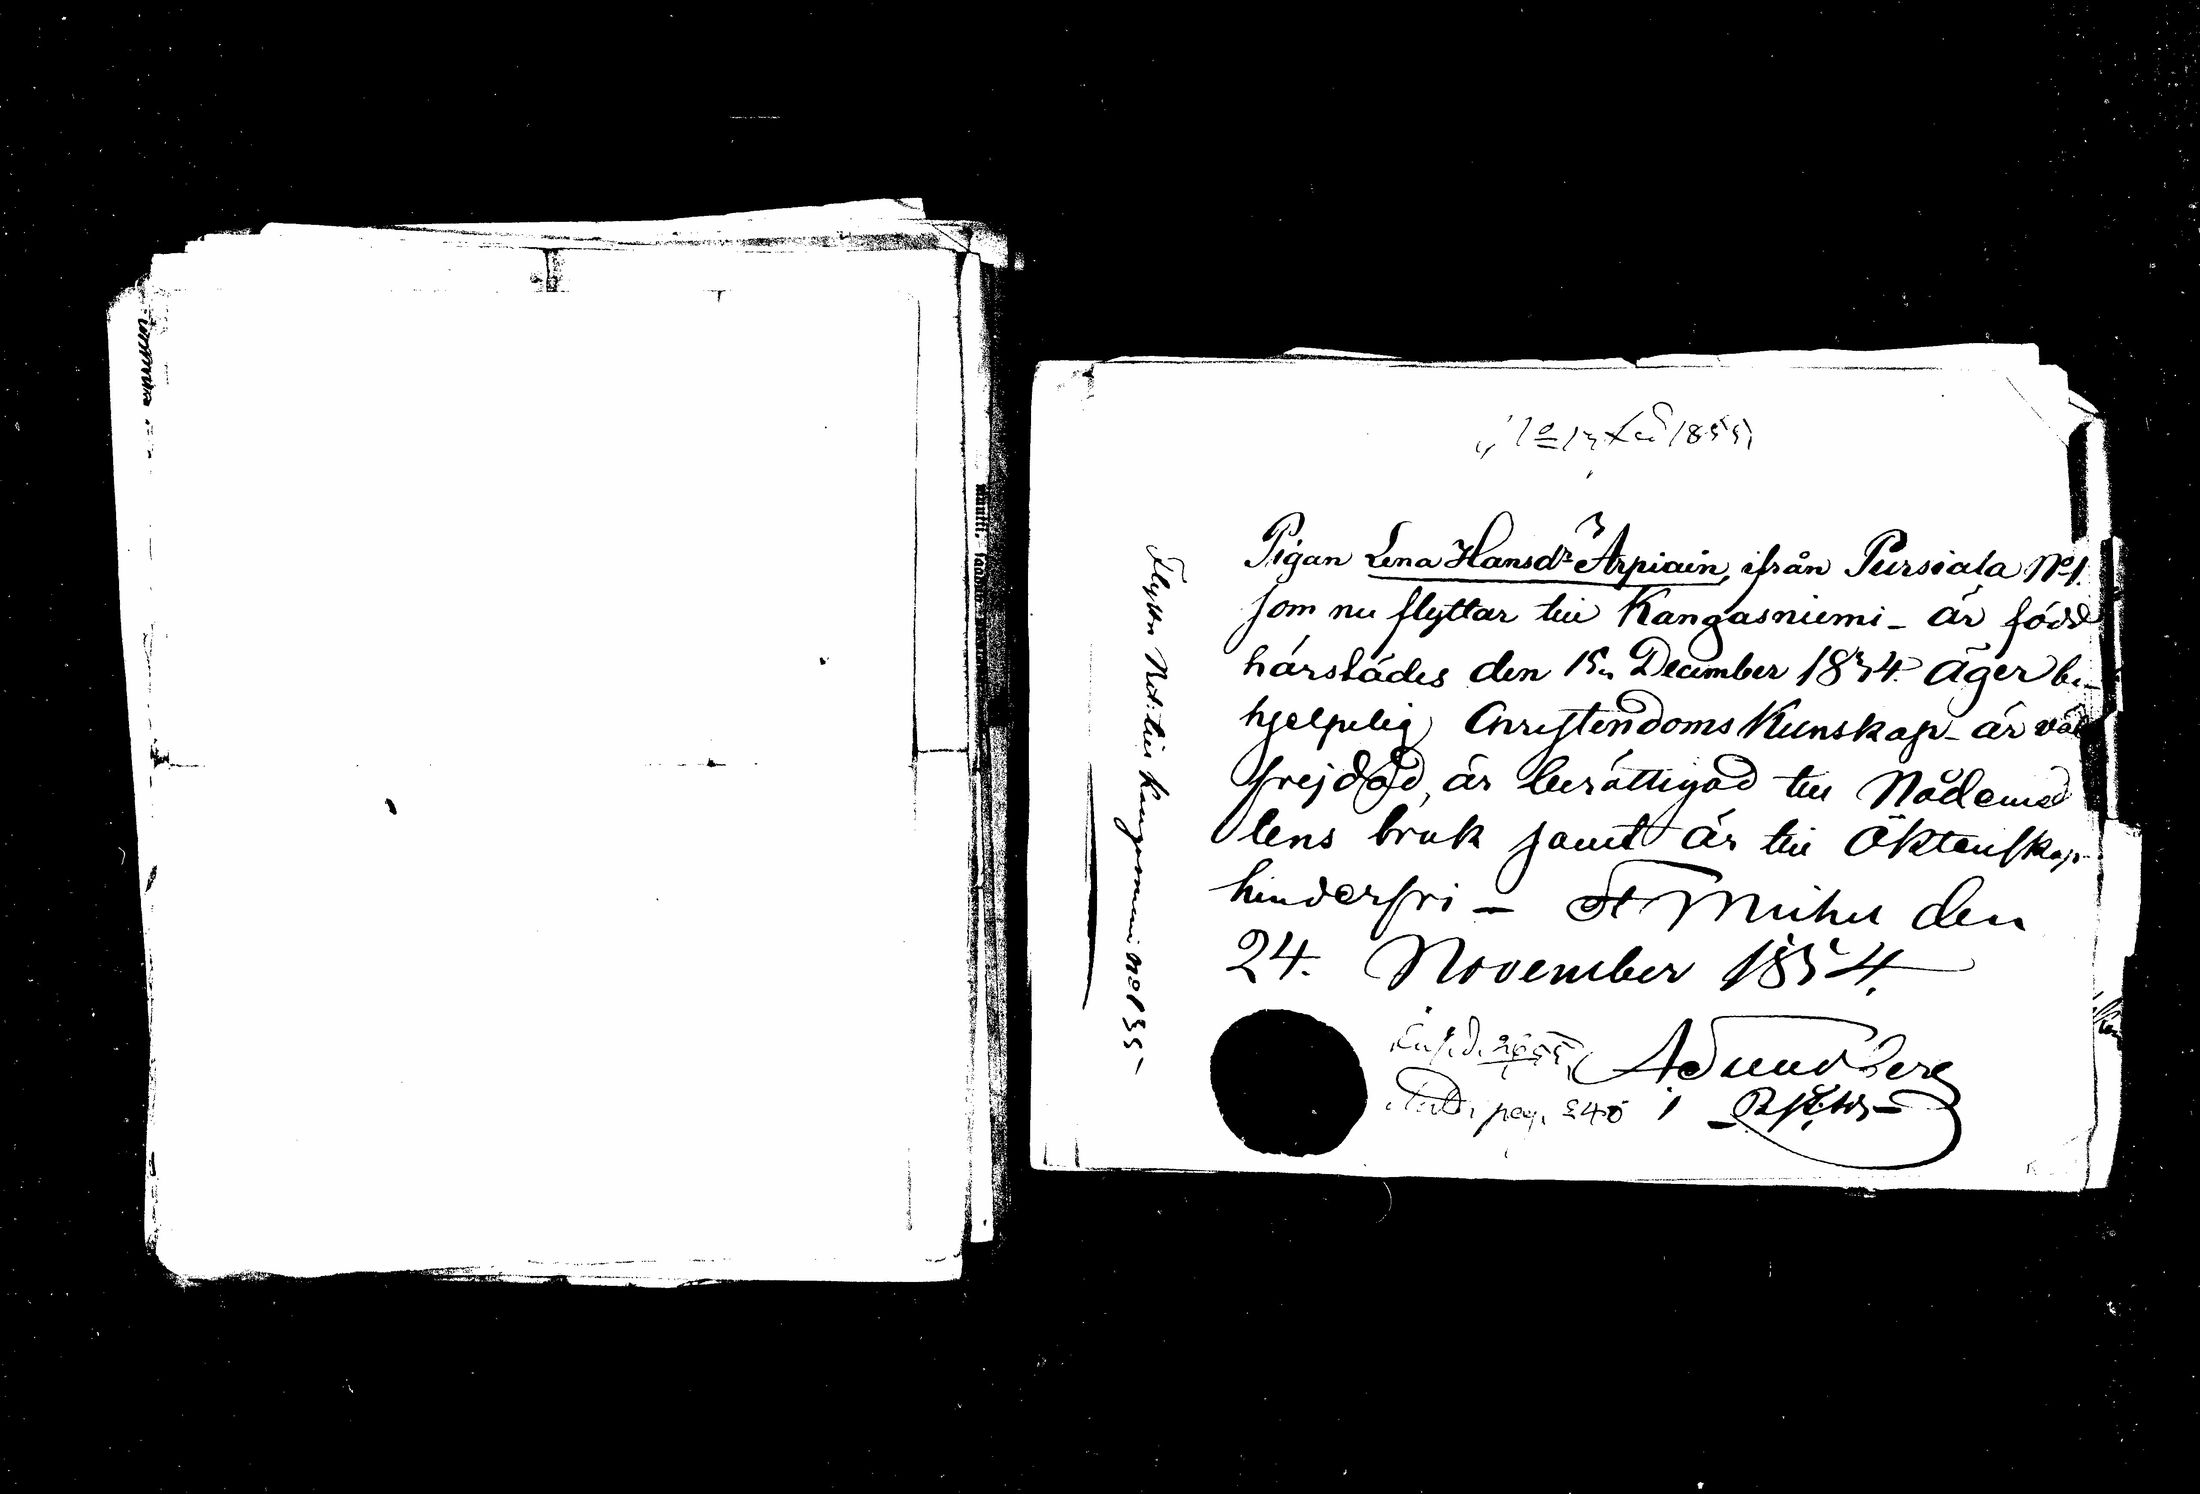 Pigan Lena Hansdr Arpiain, ifrån Pursiala No 1.
som nu flyttar till Kangasniemi - är född
härstädes den 15 December 1834 äger be-
hjelpelig Christendoms Kunskap - är väl
frejdad, är berättigad till Nådemed
lens bruk samt är till Äktenskap
hinderfri - St Michel den
24. November 1854.
ASundberg
pag. 240
Flyttn Bet: till Kangasniemi 1855